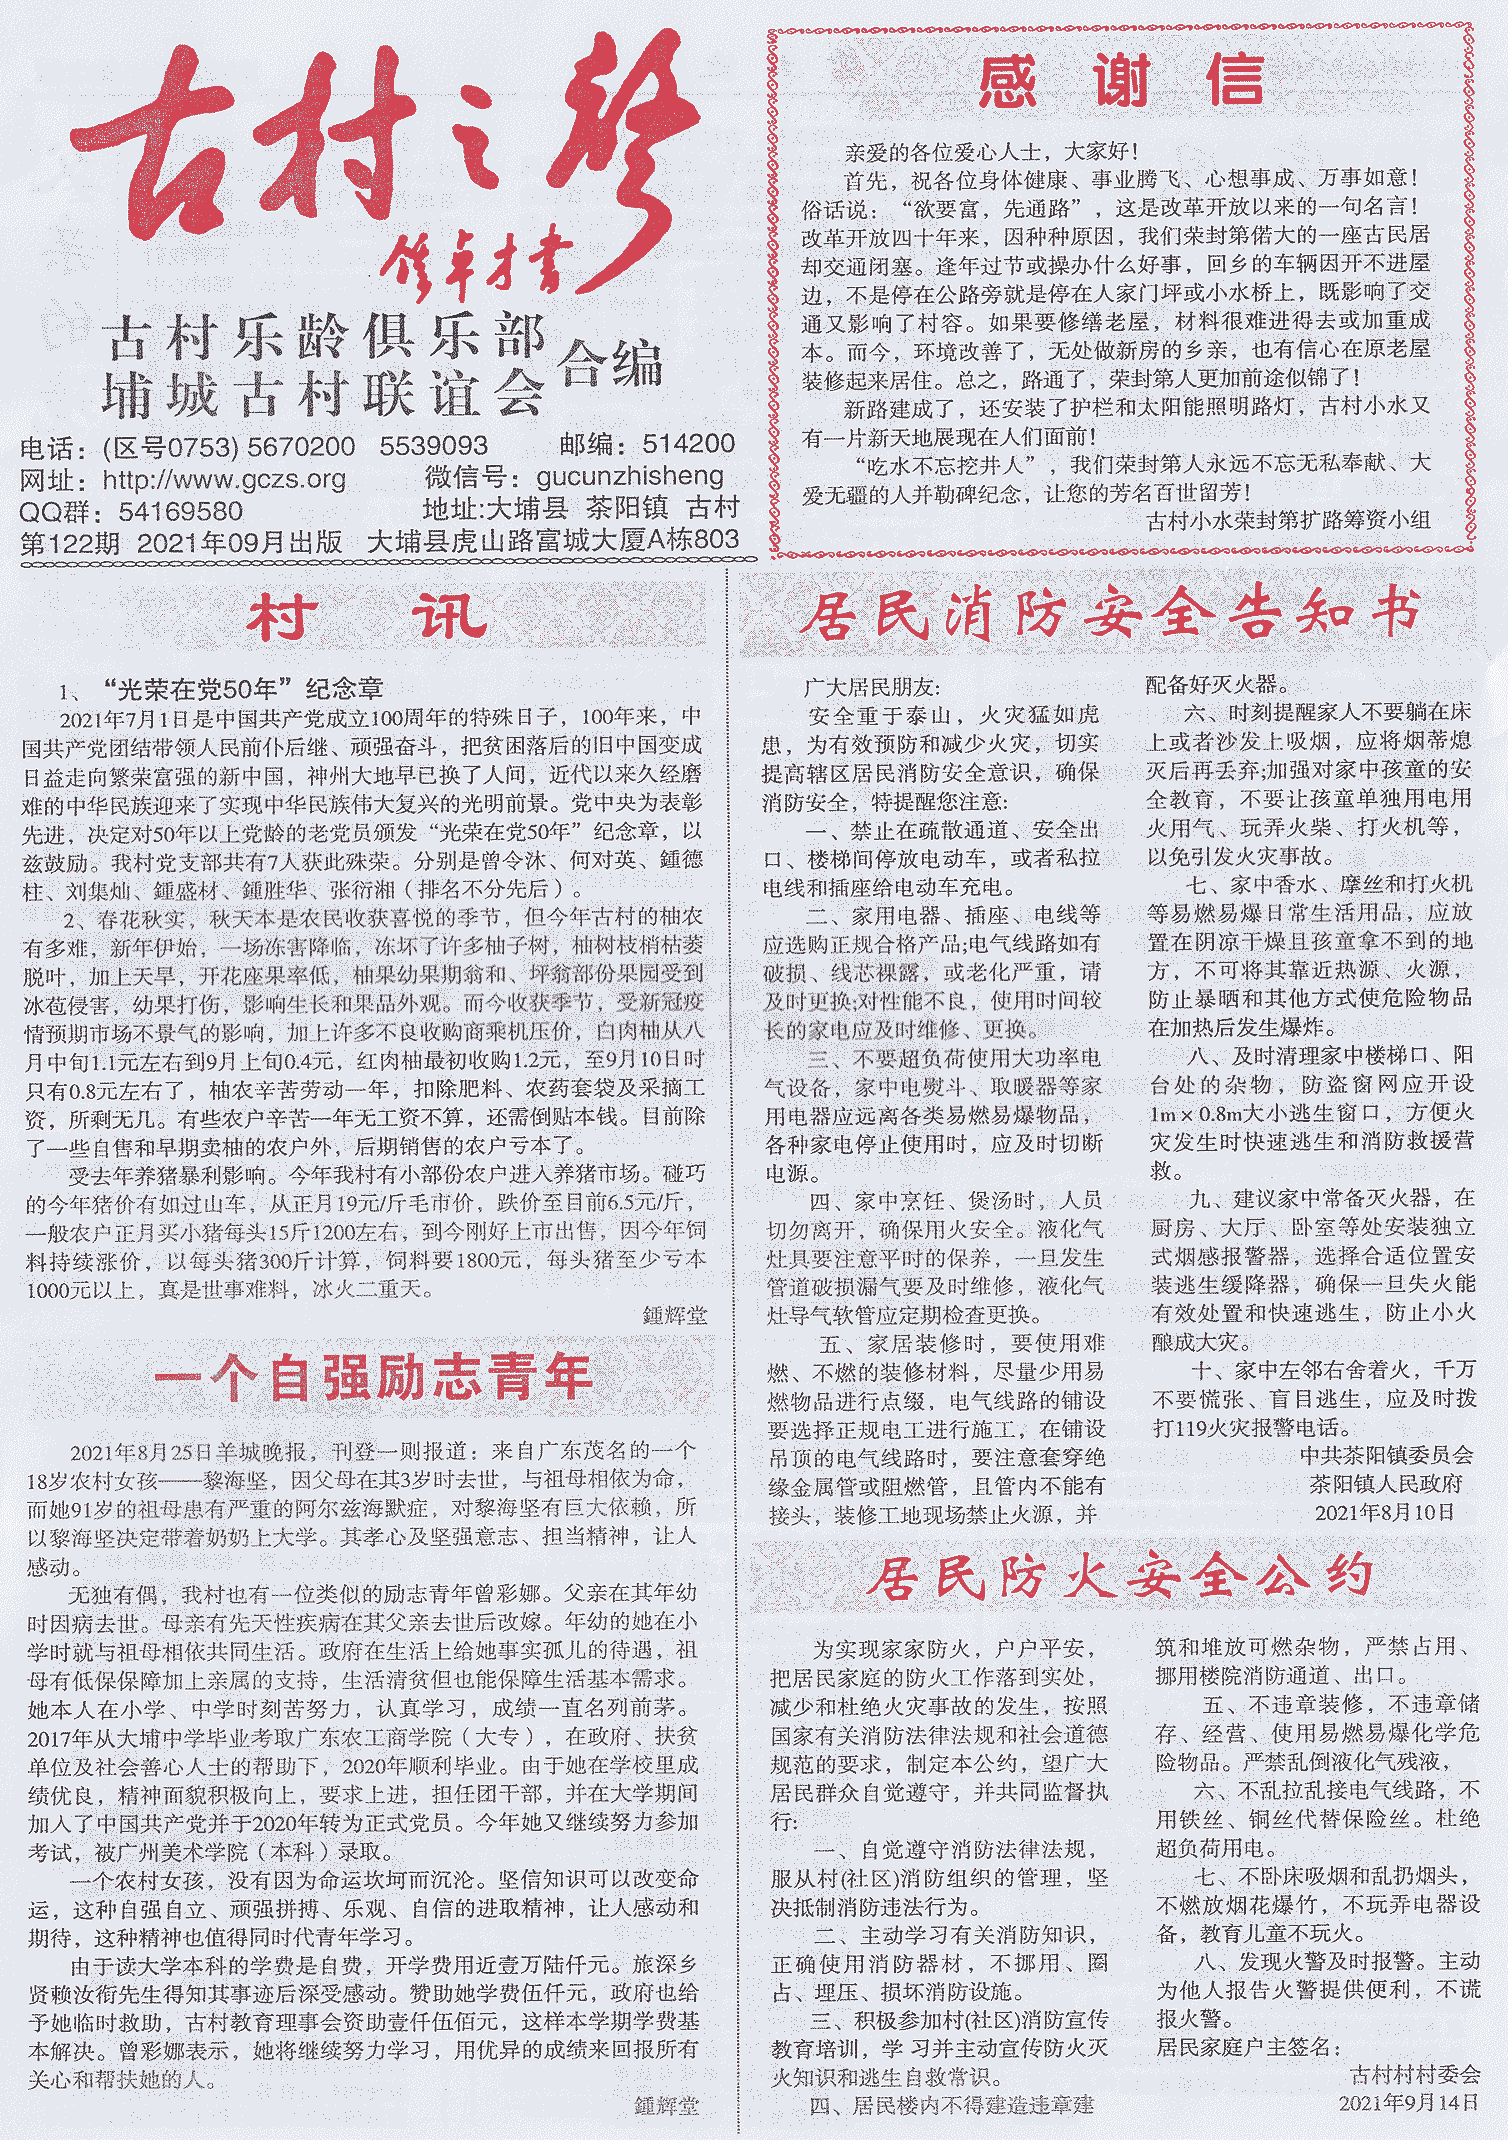 古村之聲
修平才書
古村乐龄俱乐部
埔城古村联谊会
合编
电话：(区号0753) 5670200 5539093 邮编：514200
网址：http://www.gczs.org 微信号：gucunzhisheng
QQ群：54169580 地址:大埔县 茶阳镇 古村
第122期 2021年09月出版 大埔县虎山路富城大厦A栋803
感谢信
亲爱的各位爱心人士，大家好！
首先，祝各位身体健康、事业腾飞、心想事成、万事如意！
俗话说：“欲要富，先通路”，这是改革开放以来的一句名言！
改革开放四十年来，因种种原因，我们荣封第偌大的一座古民居
却交通闭塞。逢年过节或操办什么好事，回乡的车辆因开不进屋
边，不是停在公路旁就是停在人家门坪或小水桥上，既影响了交
通又影响了村容。如果要修缮老屋，材料很难进得去或加重成
本。而今，环境改善了，无处做新房的乡亲，也有信心在原老屋
装修起来居住。总之，路通了，荣封第人更加前途似锦了！
新路建成了，还安装了护栏和太阳能照明路灯，古村小水又
有一片新天地展现在人们面前！
“吃水不忘挖井人”，我们荣封第人永远不忘无私奉献、大
爱无疆的人并勒碑纪念，让您的芳名百世留芳！
古村小水荣封第扩路筹资小组
村讯
1、“光荣在党50年”纪念章
2021年7月1日是中国共产党成立100周年的特殊日子，100年来，中
国共产党团结带领人民前仆后继、顽强奋斗，把贫困落后的旧中国变成
日益走向繁荣富强的新中国，神州大地早已换了人间，近代以来久经磨
难的中华民族迎来了实现中华民族伟大复兴的光明前景。党中央为表彰
先进，决定对50年以上党龄的老党员颁发“光荣在党50年”纪念章，以
兹鼓励。我村党支部共有7人获此殊荣。分别是曾令沐、何对英、鍾德
柱、刘集灿、鍾盛材、鍾胜华、张衍湘（排名不分先后）。
2、春花秋实，秋天本是农民收获喜悦的季节，但今年古村的柚农
有多难，新年伊始，一场冻害降临，冻坏了许多柚子树，柚树枝梢枯萎
脱叶，加上天旱，开花座果率低，柚果幼果期翁和、坪翁部份果园受到
冰苞侵害，幼果打伤，影响生长和果品外观。而今收获季节，受新冠疫
情预期市场不景气的影响，加上许多不良收购商乘机压价，白肉柚从八
月中旬1.1元左右到9月上旬0.4元，红肉柚最初收购1.2元，至9月10日时
只有0.8元左右了，柚农辛苦劳动一年，扣除肥料、农药套袋及采摘工
资，所剩无几。有些农户辛苦一年无工资不算，还需倒贴本钱。目前除
了一些自售和早期卖柚的农户外，后期销售的农户亏本了。
受去年养猪暴利影响。今年我村有小部份农户进入养猪市场。碰巧
的今年猪价有如过山车，从正月19元/斤毛市价，跌价至目前6.5元/斤，
一般农户正月买小猪每头15斤1200左右，到今刚好上市出售，因今年饲
料持续涨价，以每头猪300斤计算，饲料要1800元，每头猪至少亏本
1000元以上，真是世事难料，冰火二重天。
鍾辉堂
一个自强励志青年
2021年8月25日羊城晚报，刊登一则报道：来自广东茂名的一个
18岁农村女孩——黎海坚，因父母在其3岁时去世，与祖母相依为命，
而她91岁的祖母患有严重的阿尔兹海默症，对黎海坚有巨大依赖，所
以黎海坚决定带着奶奶上大学。其孝心及坚强意志、担当精神，让人
感动。
无独有偶，我村也有一位类似的励志青年曾彩娜。父亲在其年幼
时因病去世。母亲有先天性疾病在其父亲去世后改嫁。年幼的她在小
学时就与祖母相依共同生活。政府在生活上给她事实孤儿的待遇，祖
母有低保保障加上亲属的支持，生活清贫但也能保障生活基本需求。
她本人在小学、中学时刻苦努力，认真学习，成绩一直名列前茅。
2017年从大埔中学毕业考取广东农工商学院（大专），在政府、扶贫
单位及社会善心人士的帮助下，2020年顺利毕业。由于她在学校里成
绩优良，精神面貌积极向上，要求上进，担任团干部，并在大学期间
加入了中国共产党并于2020年转为正式党员。今年她又继续努力参加
考试，被广州美术学院（本科）录取。
一个农村女孩，没有因为命运坎坷而沉沦。坚信知识可以改变命
运，这种自强自立、顽强拼搏、乐观、自信的进取精神，让人感动和
期待，这种精神也值得同时代青年学习。
由于读大学本科的学费是自费，开学费用近壹万陆仟元。旅深乡
贤赖汝衔先生得知其事迹后深受感动。赞助她学费伍仟元，政府也给
予她临时救助，古村教育理事会资助壹仟伍佰元，这样本学期学费基
本解决。曾彩娜表示，她将继续努力学习，用优异的成绩来回报所有
关心和帮扶她的人。
鍾辉堂
居民消防安全告知书
广大居民朋友:
安全重于泰山，火灾猛如虎
患，为有效预防和减少火灾，切实
提高辖区居民消防安全意识，确保
消防安全，特提醒您注意:
一、禁止在疏散通道、安全出
口、楼梯间停放电动车，或者私拉
电线和插座给电动车充电。
二、家用电器、插座、电线等
应选购正规合格产品;电气线路如有
破损、线芯裸露，或老化严重，请
及时更换;对性能不良，使用时间较
长的家电应及时维修、更换。
三、不要超负荷使用大功率电
气设备，家中电熨斗、取暖器等家
用电器应远离各类易燃易爆物品，
各种家电停止使用时，应及时切断
电源。
四、家中烹饪、煲汤时，人员
切勿离开，确保用火安全。液化气
灶具要注意平时的保养，一旦发生
管道破损漏气要及时维修，液化气
灶导气软管应定期检查更换。
五、家居装修时，要使用难
燃、不燃的装修材料，尽量少用易
燃物品进行点缀，电气线路的铺设
要选择正规电工进行施工，在铺设
吊顶的电气线路时，要注意套穿绝
缘金属管或阻燃管，且管内不能有
接头，装修工地现场禁止火源，并
配备好灭火器。
六、时刻提醒家人不要躺在床
上或者沙发上吸烟，应将烟蒂熄
灭后再丢弃;加强对家中孩童的安
全教育，不要让孩童单独用电用
火用气、玩弄火柴、打火机等，
以免引发火灾事故。
七、家中香水、摩丝和打火机
等易燃易爆日常生活用品，应放
置在阴凉干燥且孩童拿不到的地
方，不可将其靠近热源、火源，
防止暴晒和其他方式使危险物品
在加热后发生爆炸。
八、及时清理家中楼梯口、阳
台处的杂物，防盗窗网应开设
1m×0.8m大小逃生窗口，方便火
灾发生时快速逃生和消防救援营
救。
九、建议家中常备灭火器，在
厨房、大厅、卧室等处安装独立
式烟感报警器，选择合适位置安
装逃生缓降器，确保一旦失火能
有效处置和快速逃生，防止小火
酿成大灾。
十、家中左邻右舍着火，千万
不要慌张、盲目逃生，应及时拨
打119火灾报警电话。
中共茶阳镇委员会
茶阳镇人民政府
2021年8月10日
居民防火安全公约
为实现家家防火，户户平安，
把居民家庭的防火工作落到实处，
减少和杜绝火灾事故的发生，按照
国家有关消防法律法规和社会道德
规范的要求，制定本公约，望广大
居民群众自觉遵守，并共同监督执
行:
一、自觉遵守消防法律法规，
服从村(社区)消防组织的管理，坚
决抵制消防违法行为。
二、主动学习有关消防知识，
正确使用消防器材，不挪用、圈
占、埋压、损坏消防设施。
三、积极参加村(社区)消防宣传
教育培训，学 习并主动宣传防火灭
火知识和逃生自救常识。
四、居民楼内不得建造违章建
筑和堆放可燃杂物，严禁占用、
挪用楼院消防通道、出口。
五、不违章装修，不违章储
存、经营、使用易燃易爆化学危
险物品。严禁乱倒液化气残液，
六、不乱拉乱接电气线路，不
用铁丝、铜丝代替保险丝。杜绝
超负荷用电。
七、不卧床吸烟和乱扔烟头，
不燃放烟花爆竹，不玩弄电器设
备，教育儿童不玩火。
八、发现火警及时报警。主动
为他人报告火警提供便利，不谎
报火警。
居民家庭户主签名：
古村村村委会
2021年9月14日